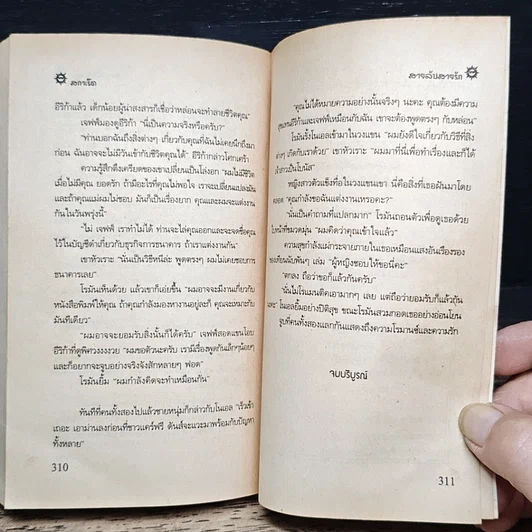 ลาการ์เรีต
อีริก้าแล้ว เด็กน้อยผู้น่าสงสารก็เชื่อว่าหล่อนจะทำลายชีวิตคุณ"
เจฟฟ์มองดูอีริก้า "นี่เป็นความจริงหรือครับ?"
"ท่านบอกฉันถึงสิ่งต่างๆ เกี่ยวกับคุณที่ฉันไม่เคยนึกถึงมา
ก่อน ฉันอาจจะไม่มีวันเข้ากับชีวิตคุณได้" อีริก้ากล่าวโศกเศร้า
ความรู้สึกตึงเครียดของเขาเปลี่ยนเป็นโล่งอก "ผมไม่มีชีวิต
เมื่อไม่มีคุณ ยอดรัก ถ้ามีอะไรที่คุณไม่พอใจ เราจะเปลี่ยนแปลงมัน
และถ้าคุณแต่งผมไม่ชอบ มันก็เป็นเรื่องยาก คุณและผมจะแต่ง
กันในวันพรุ่งนี้"
"ไม่ เจฟฟ์ เราทำไม่ได้ ท่านจะไล่คุณออกและจะจดชื่อคุณ
ไว้ในบัญชีดำเกี่ยวกับธุรกิจการธนาคาร ถ้าเราแต่งงานกัน"
เขาหัวเราะ "นั่นเป็นวิธีหนีล่ะ พูดตรงๆ ผมไม่เคยชอบการ
ธนาคารเลย"
โรมันเห็นด้วย แล้วเขาก็เอ่ยขึ้น "ผมอาจจะมีงานเกี่ยวกับ
หนังสือพิมพ์ให้คุณ ถ้าคุณกำลังมองหางานอยู่ล่ะก็ คุณจะเหมาะกับ
มันทีเดียว"
"ผมอาจจะยอมรับสิ่งนั้นก็ได้ครับ" เจฟฟ์สอดแขนโอบ
อีริก้าที่ดูพิศวงงงงวย "ผมขอตัวนะครับ เรามีเรื่องพูดกันเล็กๆน้อยๆ
และก็อยากจะจูบอย่างจริงจังสักหลายๆ ฟอด"
โรมันยิ้ม "ผมกำลังคิดจะทำเหมือนกัน"
ทันทีที่คนทั้งสองไปแล้วชายหนุ่มก็กล่าวกับโนเอล "เร็วเข้า
เถอะ เอาม่านลงก่อนที่ชาวแคร์ฟรี ดันส์จะแวะมาพร้อมกับปัญหา
ทั้งหลาย"
310
"คุณไม่ได้หมายความอย่างนั้นจริงๆ นะคะ คุณต้องมีความ
สุขแทนอีริก้าและเจฟฟ์เหมือนกับฉัน เขาจะต้องพูดตรงๆ กับหล่อน"
โรมันรั้งโนเอลเข้ามาในวงแขน "ผมยังดีใจเกี่ยวกับวิธีที่สิ่ง
ต่างๆ เกิดกับเราด้วย" เขาหัวเราะ "ผมมาที่นี่เพื่อทำเรื่องและก็ได้
เจ้าสาวเป็นโบนัส"
หญิงสาวตัวแข็งทื่อในวงแขนเขา นี่คือสิ่งที่เธอฝันมาโดย
ตลอด "คุณกำลังขอฉันแต่งงานเหรอคะ?"
"นั่นเป็นคำถามที่แปลกมาก" โรมันถอนตัวเพื่อดูเธอด้วย
ใบหน้าที่ขมวดมุ่น "ผมคิดว่าคุณเข้าใจแล้ว"
ความสุขกำลังแผ่กระจายภายในเธอเหมือนแสงอันเรืองรอง
ของเทียนนับพันๆ เล่ม "ผู้หญิงชอบให้ขอนี่คะ"
"ตกลง ถือว่าขอก็แล้วกันครับ"
"นั่นไม่โรแมนติคเอามากๆ เลย แต่ถือว่ายอมรับก็แล้วกัน
ค่ะ" โนเอลยิ้มอย่างปีติสุข ขณะโรมันสวมกอดเธออย่างอ่อนโยน
จูบที่คนทั้งสองแลกกันแสดงถึงความโรมานซ์และความรัก
จบบริบูรณ์
311